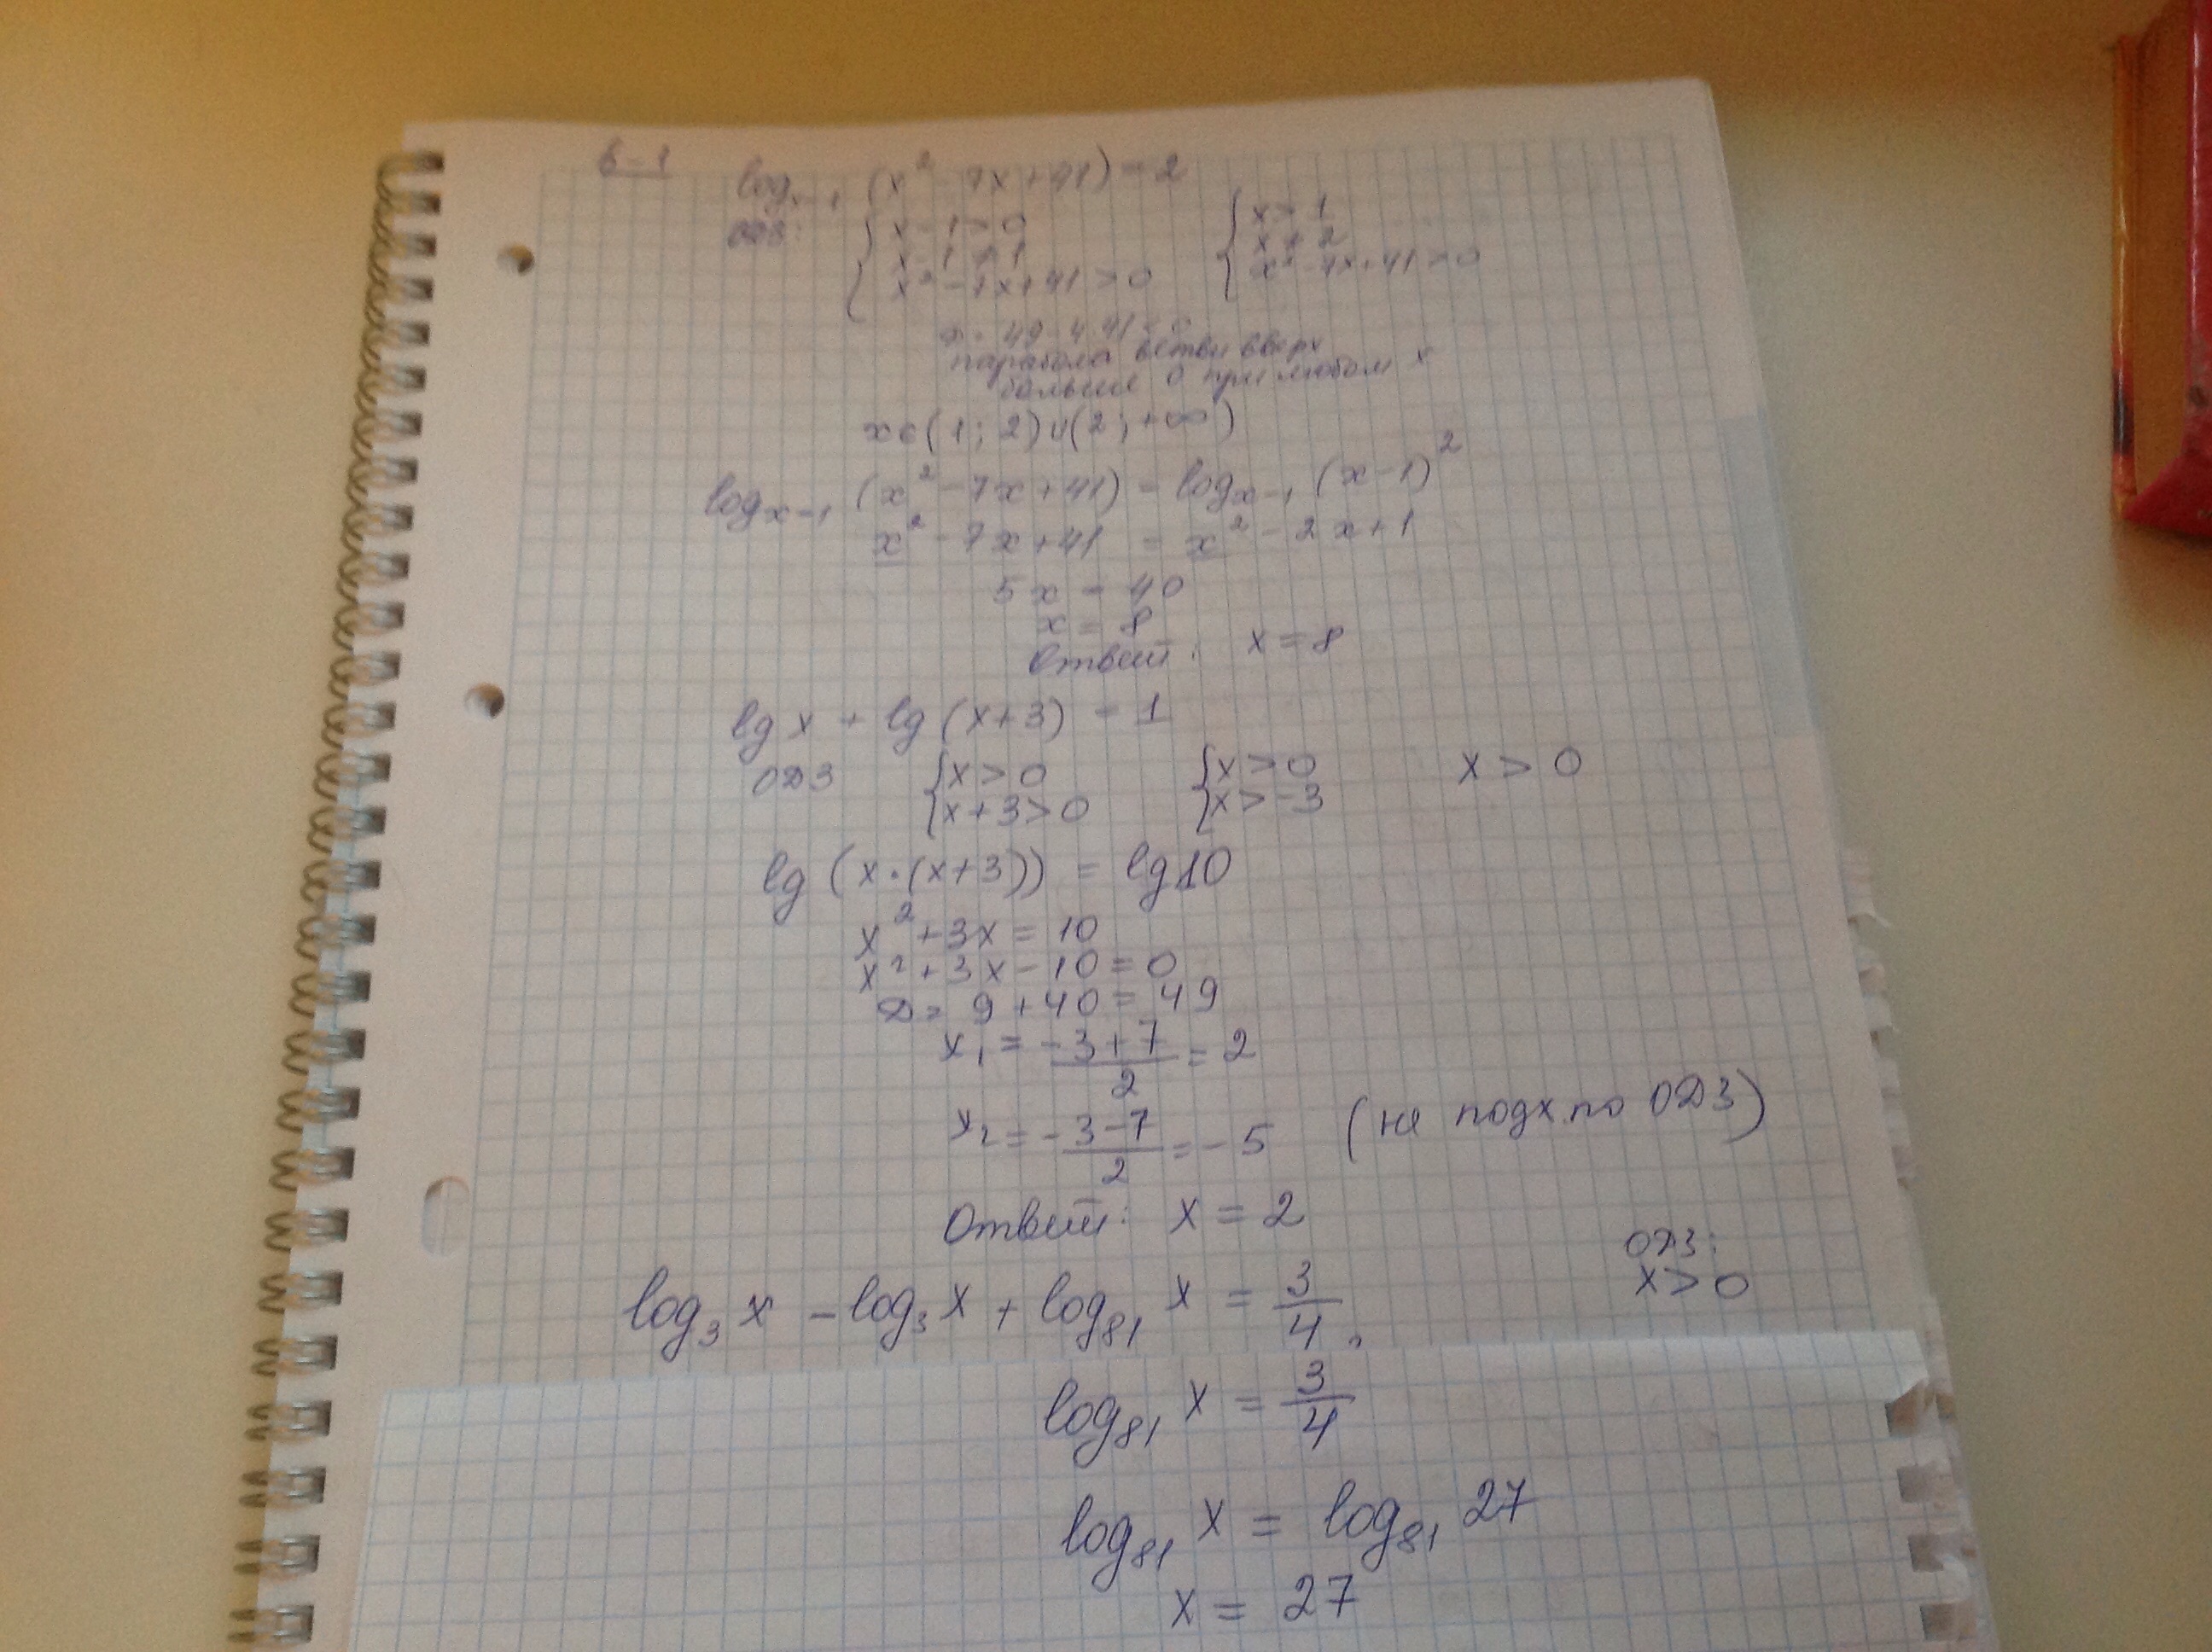 В-1
log_{x-1} (x² - 7x + 41) = 2
ОДЗ: { x - 1 > 0 { x > 1
x - 1 ≠ 1 x ≠ 2
x² - 7x + 41 > 0 x² - 7x + 41 > 0
D = 49 - 4·41 < 0
парабола ветви вверх
больше 0 при любом x
x ∈ (1; 2) ∪ (2; +∞)
log_{x-1} (x² - 7x + 41) = log_{x-1} (x-1)²
x² - 7x + 41 = x² - 2x + 1
5x = 40
x = 8
Ответ: x = 8
lg x + lg (x+3) = 1
ОДЗ { x > 0 { x > 0 x > 0
x + 3 > 0 x > -3
lg (x·(x+3)) = lg 10
x² + 3x = 10
x² + 3x - 10 = 0
D = 9 + 40 = 49
x₁ = \frac{-3+7}{2} = 2
x₂ = \frac{-3-7}{2} = -5 (не подх. по ОДЗ)
Ответ: x = 2
ОДЗ:
log₃ x - log₃ x + log₈₁ x = \frac{3}{4} x > 0
log₈₁ x = \frac{3}{4}
log₈₁ x = log₈₁ 27
x = 27